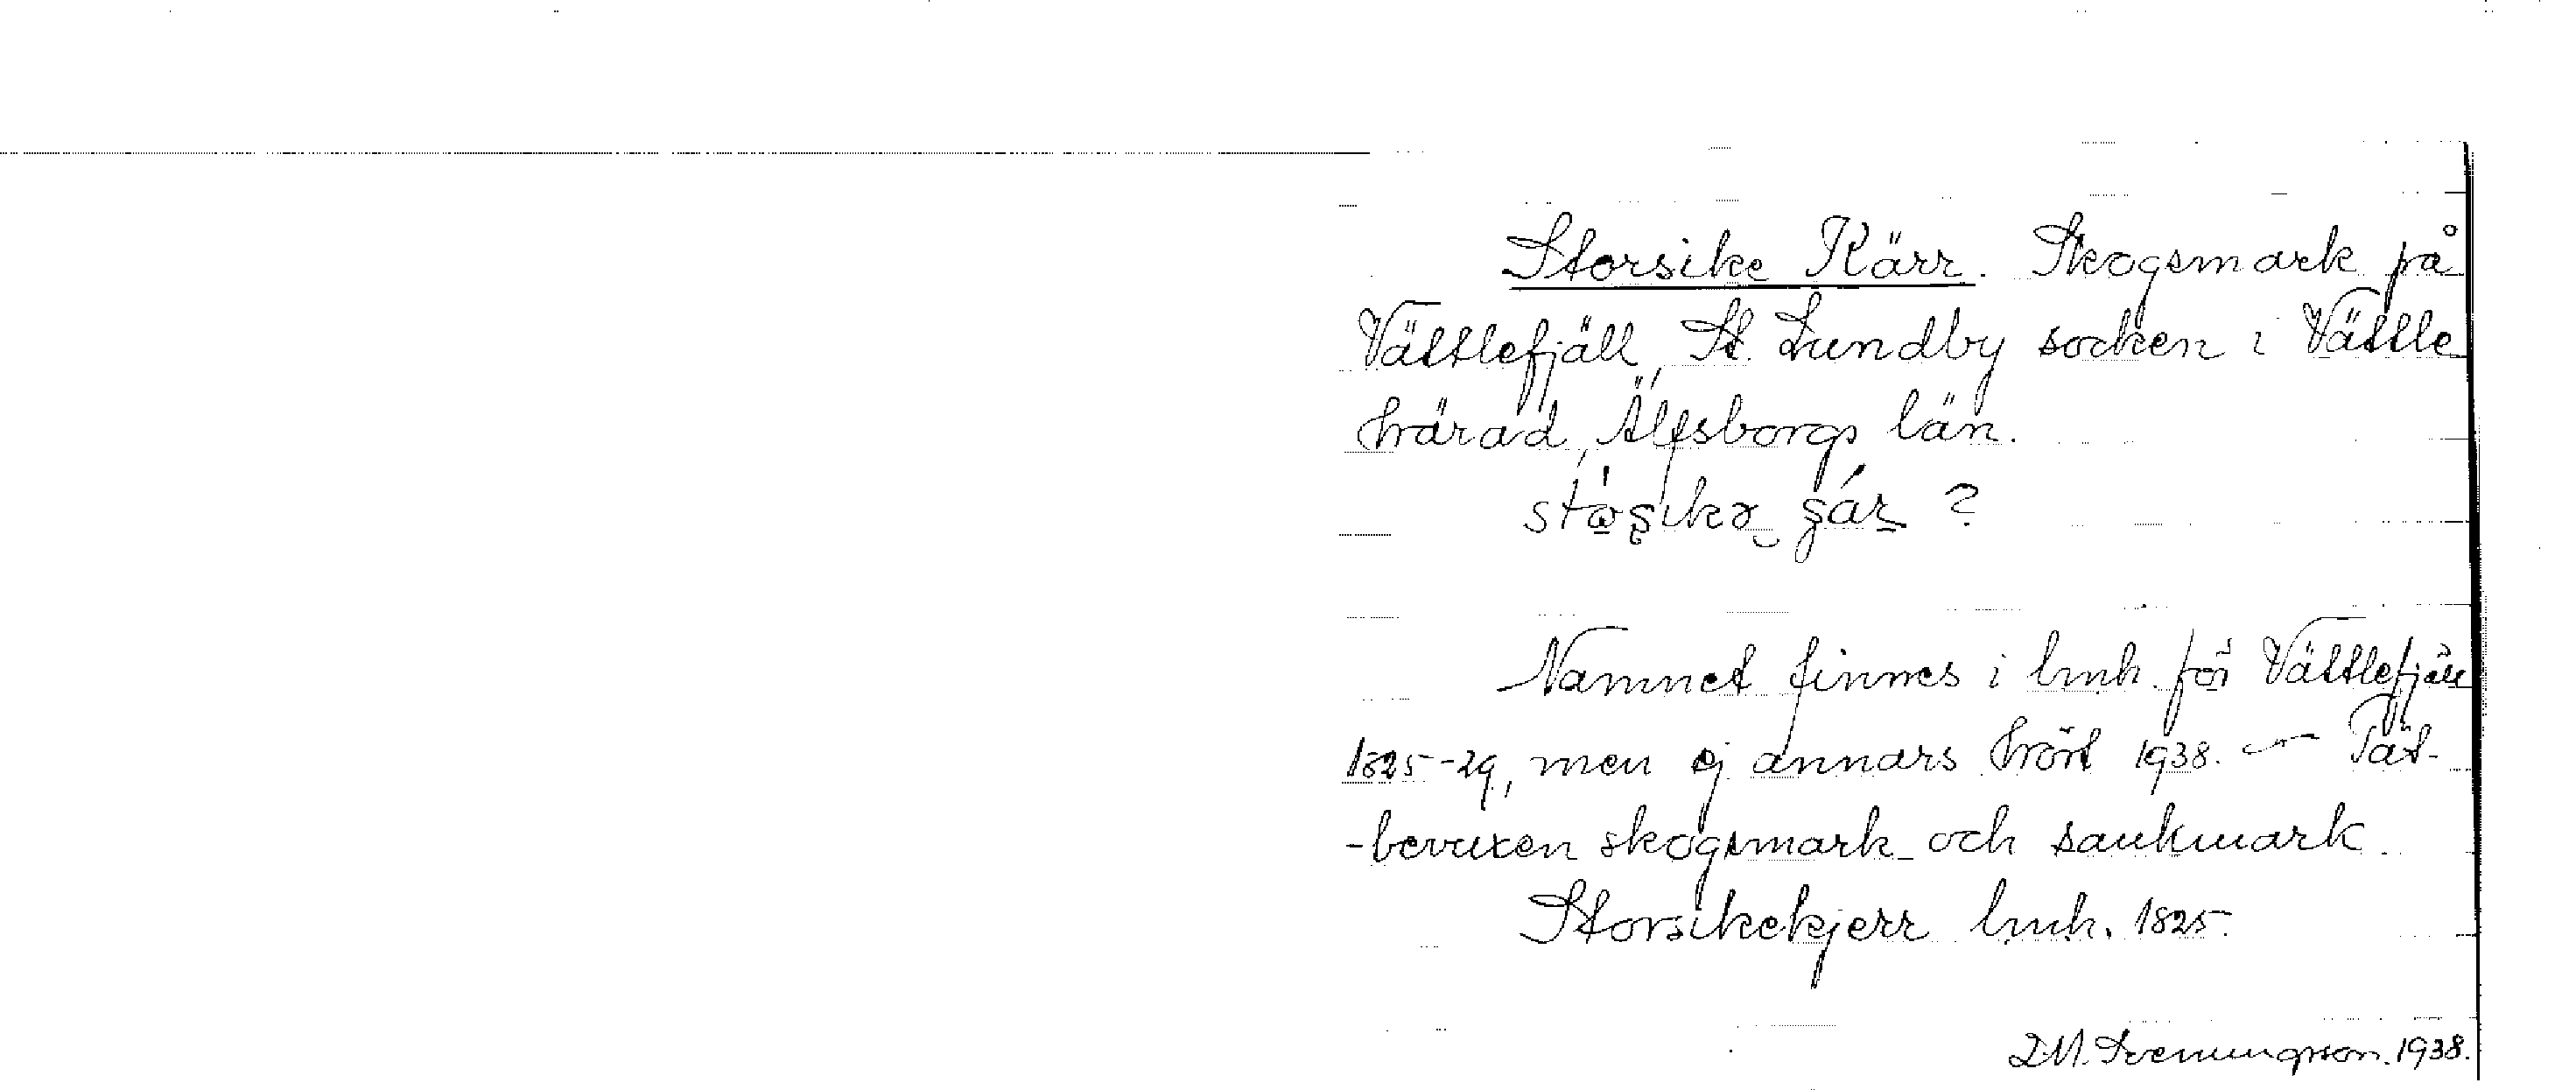 Storsike Kärr. Skogsmark på
Vättlefjäll, St. Lundby socken i Vättle
härad, Älfsborgs län.
?
Namnet finnes i lmh. för Vättlefjäll
1825-29, men ej annars hört 1938. — Tät-
-bevuxen skogsmark och sankmark
Storsikekjerr lmh. 1825.
1938.